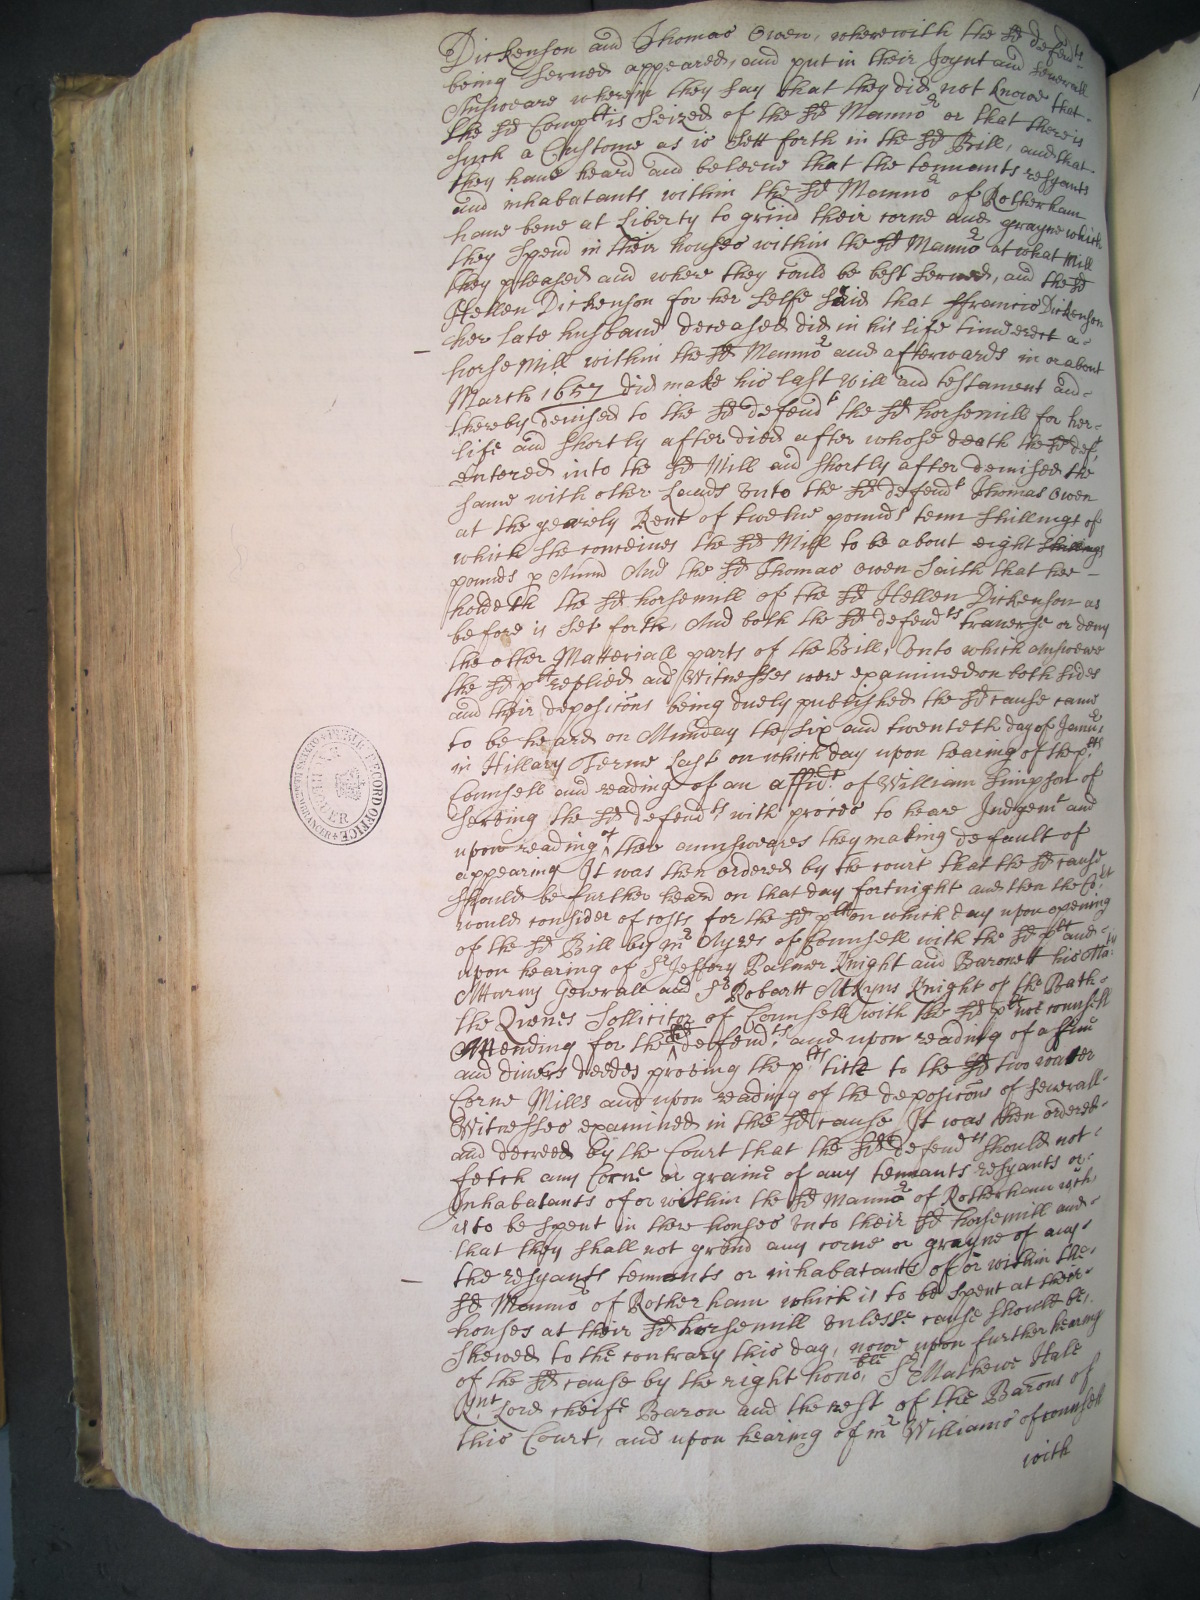 Dickenson and Thomas Owen, wherewith the sd defendts
being served appeared, and put in their Joynt and severall
Answeare wherein they say that they did not know that
the sd Complt is Seized of the sd Mannor or that there is
such a Custome as is Sett forth in the sd Bill, and that
they have heard and beleeve that the tennants resyants
and inhabatants within the sd Mannor of Rotherham
have bene at Liberty to grind their corne and grayne which
they Spend in their houses within the sd Mannor at what Mill
they pleased and where they could be best served, and the sd
Hellen Dickenson for her selfe said that ffrancis Dickenson
her late husband deceased did in his life time erect a
horse Mill within the sd Mannor and afterwards in or about
March 1657 did make his last Will and testament and
thereby devised to the sd defendt the sd horsemill for her
life and shortly after died after whose death the sd deft
entered into the sd Mill and shortly after demised the
same with other Lands unto the sd defendt Thomas Owen
at the yearely Rent of twelve pounds tenn shillings of
which she conceives the sd Mill to be about eight shillings
pounds p Annu And the sd Thomas Owen saith that hee
holdeth the sd horsemill of the sd Hellen Dickenson as
before is Set forth, And both the sd defendts traverse or deny
the other Materiall parts of the Bill, Unto which Answere
the sd plt replied and Witnesses were examined on both sides
and their deposicons being duely published the sd cause came
to be heard on Munday the Six and twenteth day of Januar
in Hillary Terme Last on which day upon hearing of the plts
Counsell and reading of an affidt of William Simpson of
serving the sd defendts with proces to heare Judgemt and
upon reading of their aunsweares they making default of
appearing It was then ordered by the court that the sd cause
should be further heard on that day fortnight and then the Cort
would consider of costs for the sd plt on which day upon opening
of the sd Bill by mr Ayres of Counsell with the sd plt and
upon hearing of Sr Jeffery Palmer Knight and Baronett his Matis
Atturny Generall and Sr Robartt Atkyns Knight of the Bath
the Queenes Sollicitor of Counsell with the sd plt noe counsell
Attending for the sd defendts and upon reading of a ffine
and divers deedes proving the plts title to the sd two water
Corne Mills and upon reading of the deposicons of severall
Witnesses examined in the sd cause It was then ordered
and decreed by the Court that the sd defendts should not
fetch any Corne or graine of any tennants resyants or
Inhabatants of or within the sd Mannor of Rotherham wch
is to be spent in there houses Unto their sd horsemill and
that they shall not grind any corne or grayne of any
the resyants tennants or inhabatants of or within the
sd Mannor of Rotherham which is to be spent at their
houses at their sd horsemill Unlesse cause should be
shewed to the contrary this day, nowe upon further hearing
of the sd cause by the right honoble Sr Mathewe Hale
Knt Lord cheife Baron and the rest of the Barons of
this Court, and upon hearing of mr Williams of counsell
with
PUBLIC RECORD OFFICE